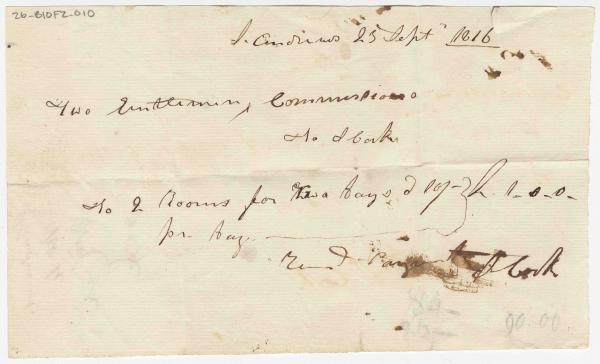 26-B10F2-010
St. Andrews 25 Sept. 1816
Two Gentlemen, Commissions
To J Cook
To 2 Rooms for two days @ 10/- £ 1-0-0-
pr. Day
Payment J Cook
84-
90.00.